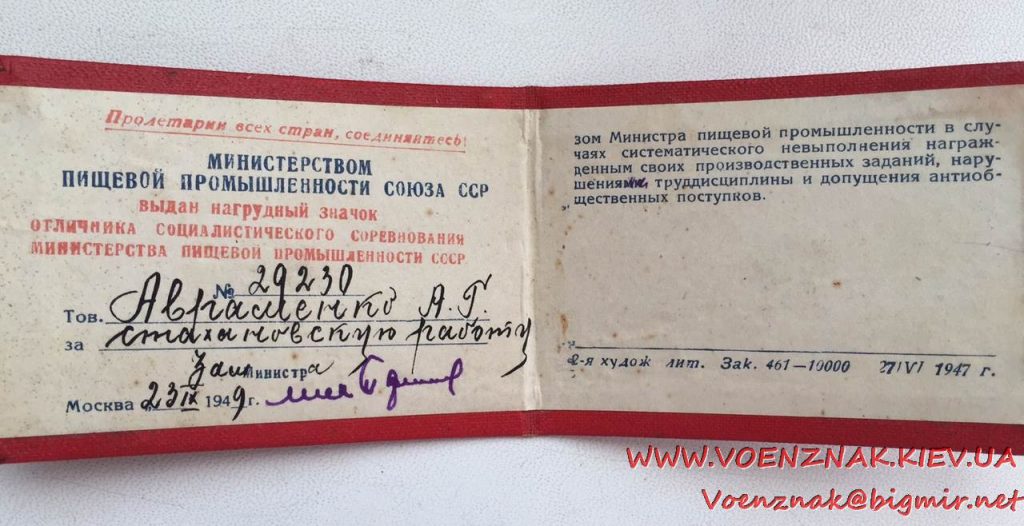 Пролетарии всех стран, соединяйтесь!
МИНИСТЕРСТВОМ
ПИЩЕВОЙ ПРОМЫШЛЕННОСТИ СОЮЗА ССР
ВЫДАН НАГРУДНЫЙ ЗНАЧОК
ОТЛИЧНИКА СОЦИАЛИСТИЧЕСКОГО СОРЕВНОВАНИЯ
МИНИСТЕРСТВА ПИЩЕВОЙ ПРОМЫШЛЕННОСТИ СССР
№ 29230
Тов. Авраменко А.Г.
за стахановскую работу
Зам Министра
Москва 23 IX 1949 г.
зом Министра пищевой промышленности в слу-
чаях систематического невыполнения награж-
денным своих производственных заданий, нару-
шения труддисциплины и допущения антиоб-
щественных поступков.
2-я худож лит. Зак. 461—10000 27/VI 1947 г.
WWW.VOENZNAK.KIEV.UA
Voenznak@bigmir.net